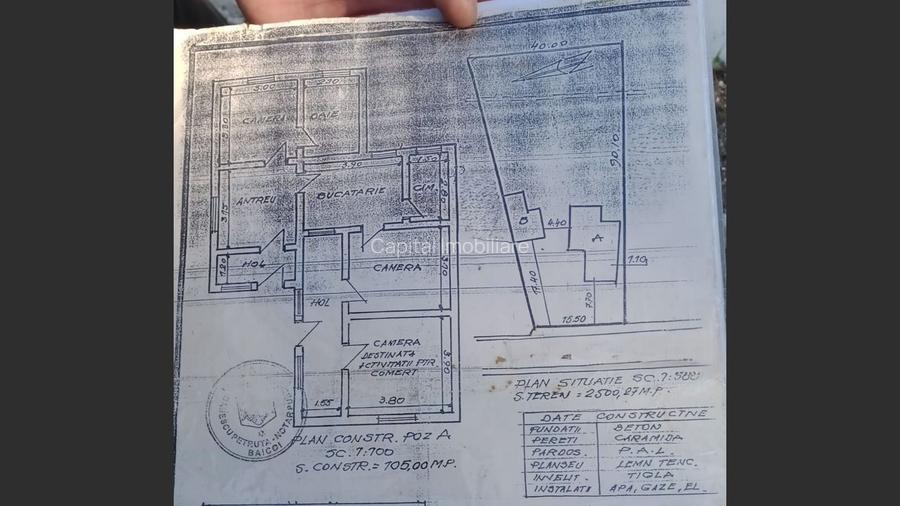 40.00
5.00
CAMERA
BAIE
3.90
1.50
2.80
ANTREU
BUCATARIE
CĂM.
3.15
1.20
HOL
CAMERA
3.70
HOL
CAMERA
DESTINATĂ
ACTIVITATII PTR.
COMERT
3.90
1.55
3.80
PLAN CONSTR. POZ A
SC. 1:100
S. CONSTR. = 105,00 M.P.
90.10
B
4.40
A
1.10
17.40
7.70
15.50
PLAN SITUATIE SC. 1:500
S. TEREN = 2500,27 M.P.
DATE CONSTRUCTIVE
FUNDATII BETON
PERETI CARAMIDA
PARDOS. P.A.L.
PLANSEU LEMN TENC.
INVELIT. TIGLA
INSTALATII APA, GAZE, EL.
PETRUTA - NOTAR PUB
BAICOI
Capital Imobiliare